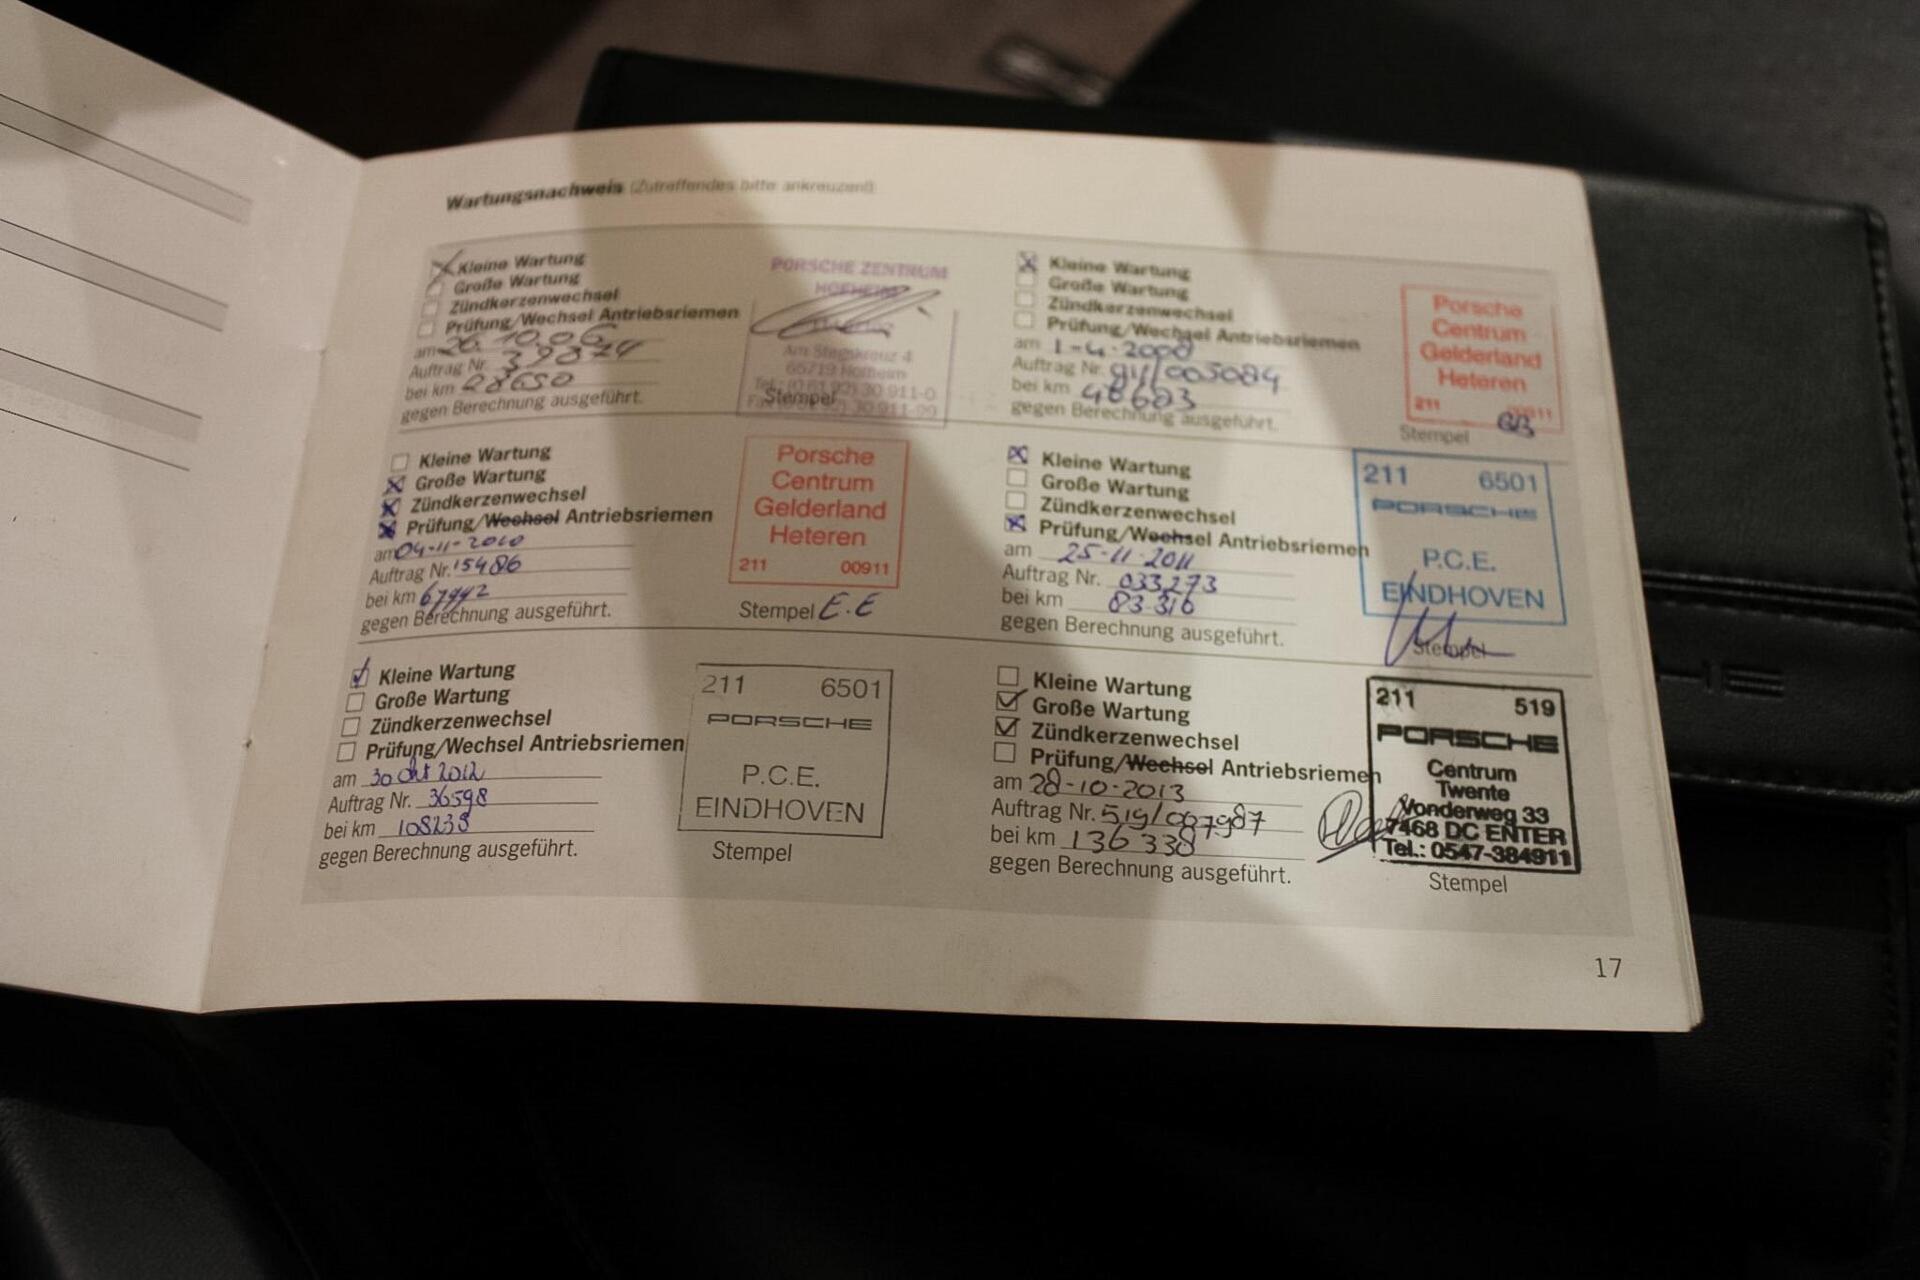 Wartungsnachweis (Zutreffendes bitte ankreuzen!)
Kleine Wartung
Große Wartung
Zündkerzenwechsel
Prüfung/Wechsel Antriebsriemen
am 26.10.06
Auftrag Nr. 39874
bei km 28650
gegen Berechnung ausgeführt.
PORSCHE ZENTRUM
HOFHEIM
Am Stegskreuz 4
65719 Hofheim
Tel.: (0 61 92) 30 911-0
Stempel
30 911-99
Kleine Wartung
Große Wartung
Zündkerzenwechsel
Prüfung/Wechsel Antriebsriemen
am 1-4-2008
Auftrag Nr. 911/003084
bei km 48603
gegen Berechnung ausgeführt.
Porsche
Centrum
Gelderland
Heteren
211 00911
Stempel
Kleine Wartung
Große Wartung
Zündkerzenwechsel
Prüfung/Wechsel Antriebsriemen
am 04-11-2010
Auftrag Nr. 15486
bei km 67992
gegen Berechnung ausgeführt.
Porsche
Centrum
Gelderland
Heteren
211 00911
Stempel E.E
Kleine Wartung
Große Wartung
Zündkerzenwechsel
Prüfung/Wechsel Antriebsriemen
am 25-11-2011
Auftrag Nr. 033273
bei km 83.316
gegen Berechnung ausgeführt.
211 6501
PORSCHE
P.C.E.
EINDHOVEN
Stempel
Kleine Wartung
Große Wartung
Zündkerzenwechsel
Prüfung/Wechsel Antriebsriemen
am 30 okt 2012
Auftrag Nr. 36598
bei km 108238
gegen Berechnung ausgeführt.
211 6501
PORSCHE
P.C.E.
EINDHOVEN
Stempel
Kleine Wartung
Große Wartung
Zündkerzenwechsel
Prüfung/Wechsel Antriebsriemen
am 28-10-2013
Auftrag Nr. 519/007987
bei km 136338
gegen Berechnung ausgeführt.
211 519
PORSCHE
Centrum
Twente
Vonderweg 33
7468 DC ENTER
Tel.: 0547-384911
Stempel
17